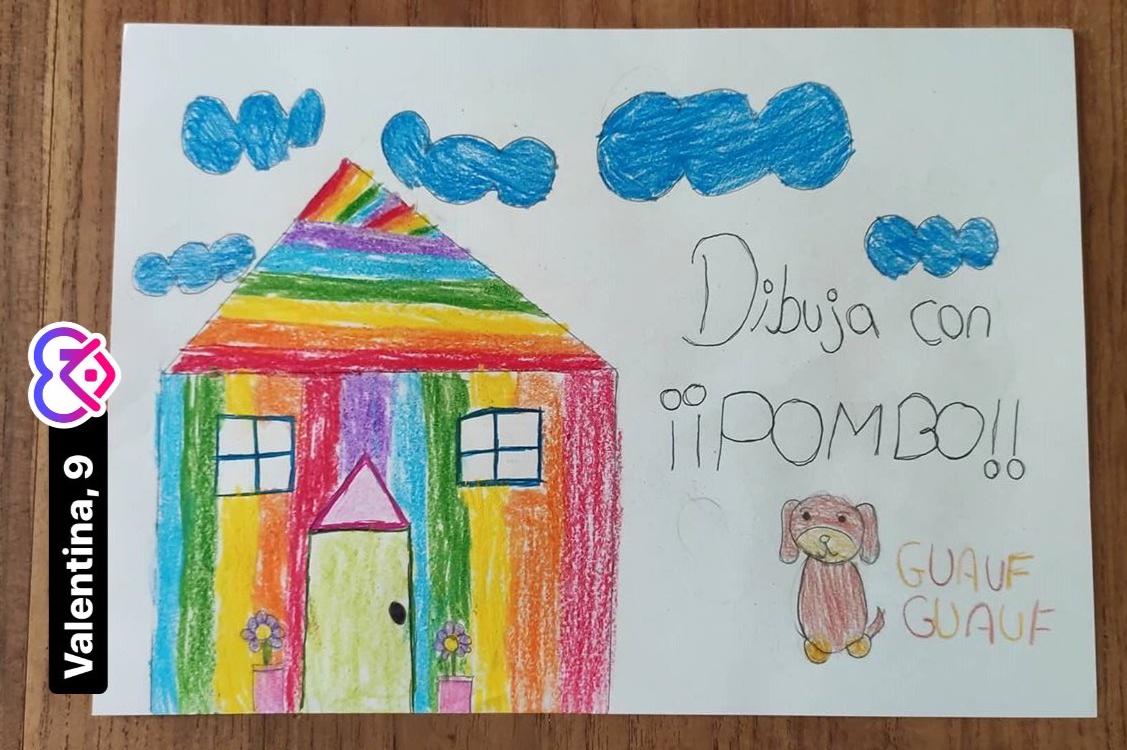 Dibuja con
¡¡POMBO!!
GUAUF
GUAUF
Valentina, 9